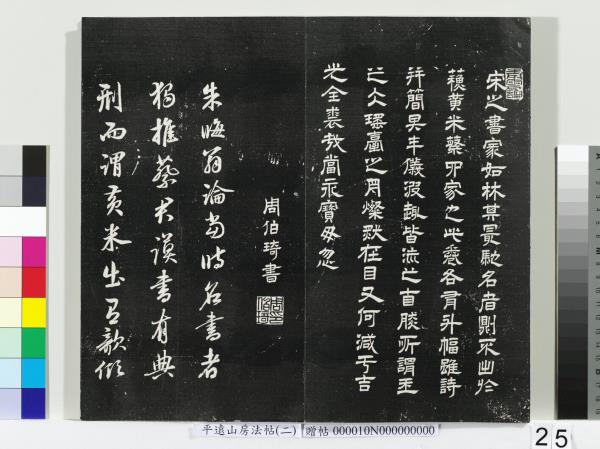 宋之書家如林其最馳名者則不出於
蘇黃米蔡四家也此卷各有斗幅雖詩
并簡其丰儀沒趣皆流之直勝所謂玉
之犬璠臺之月燦然在目又何減于吉
光全裘哉當永寶毋忽
周伯琦書
朱晦翁論當時名書者
獨推蔡君謨書有典
刑而謂黃米出有欹傾
平遠山房法帖(二) 贈帖 000010N000000000
25